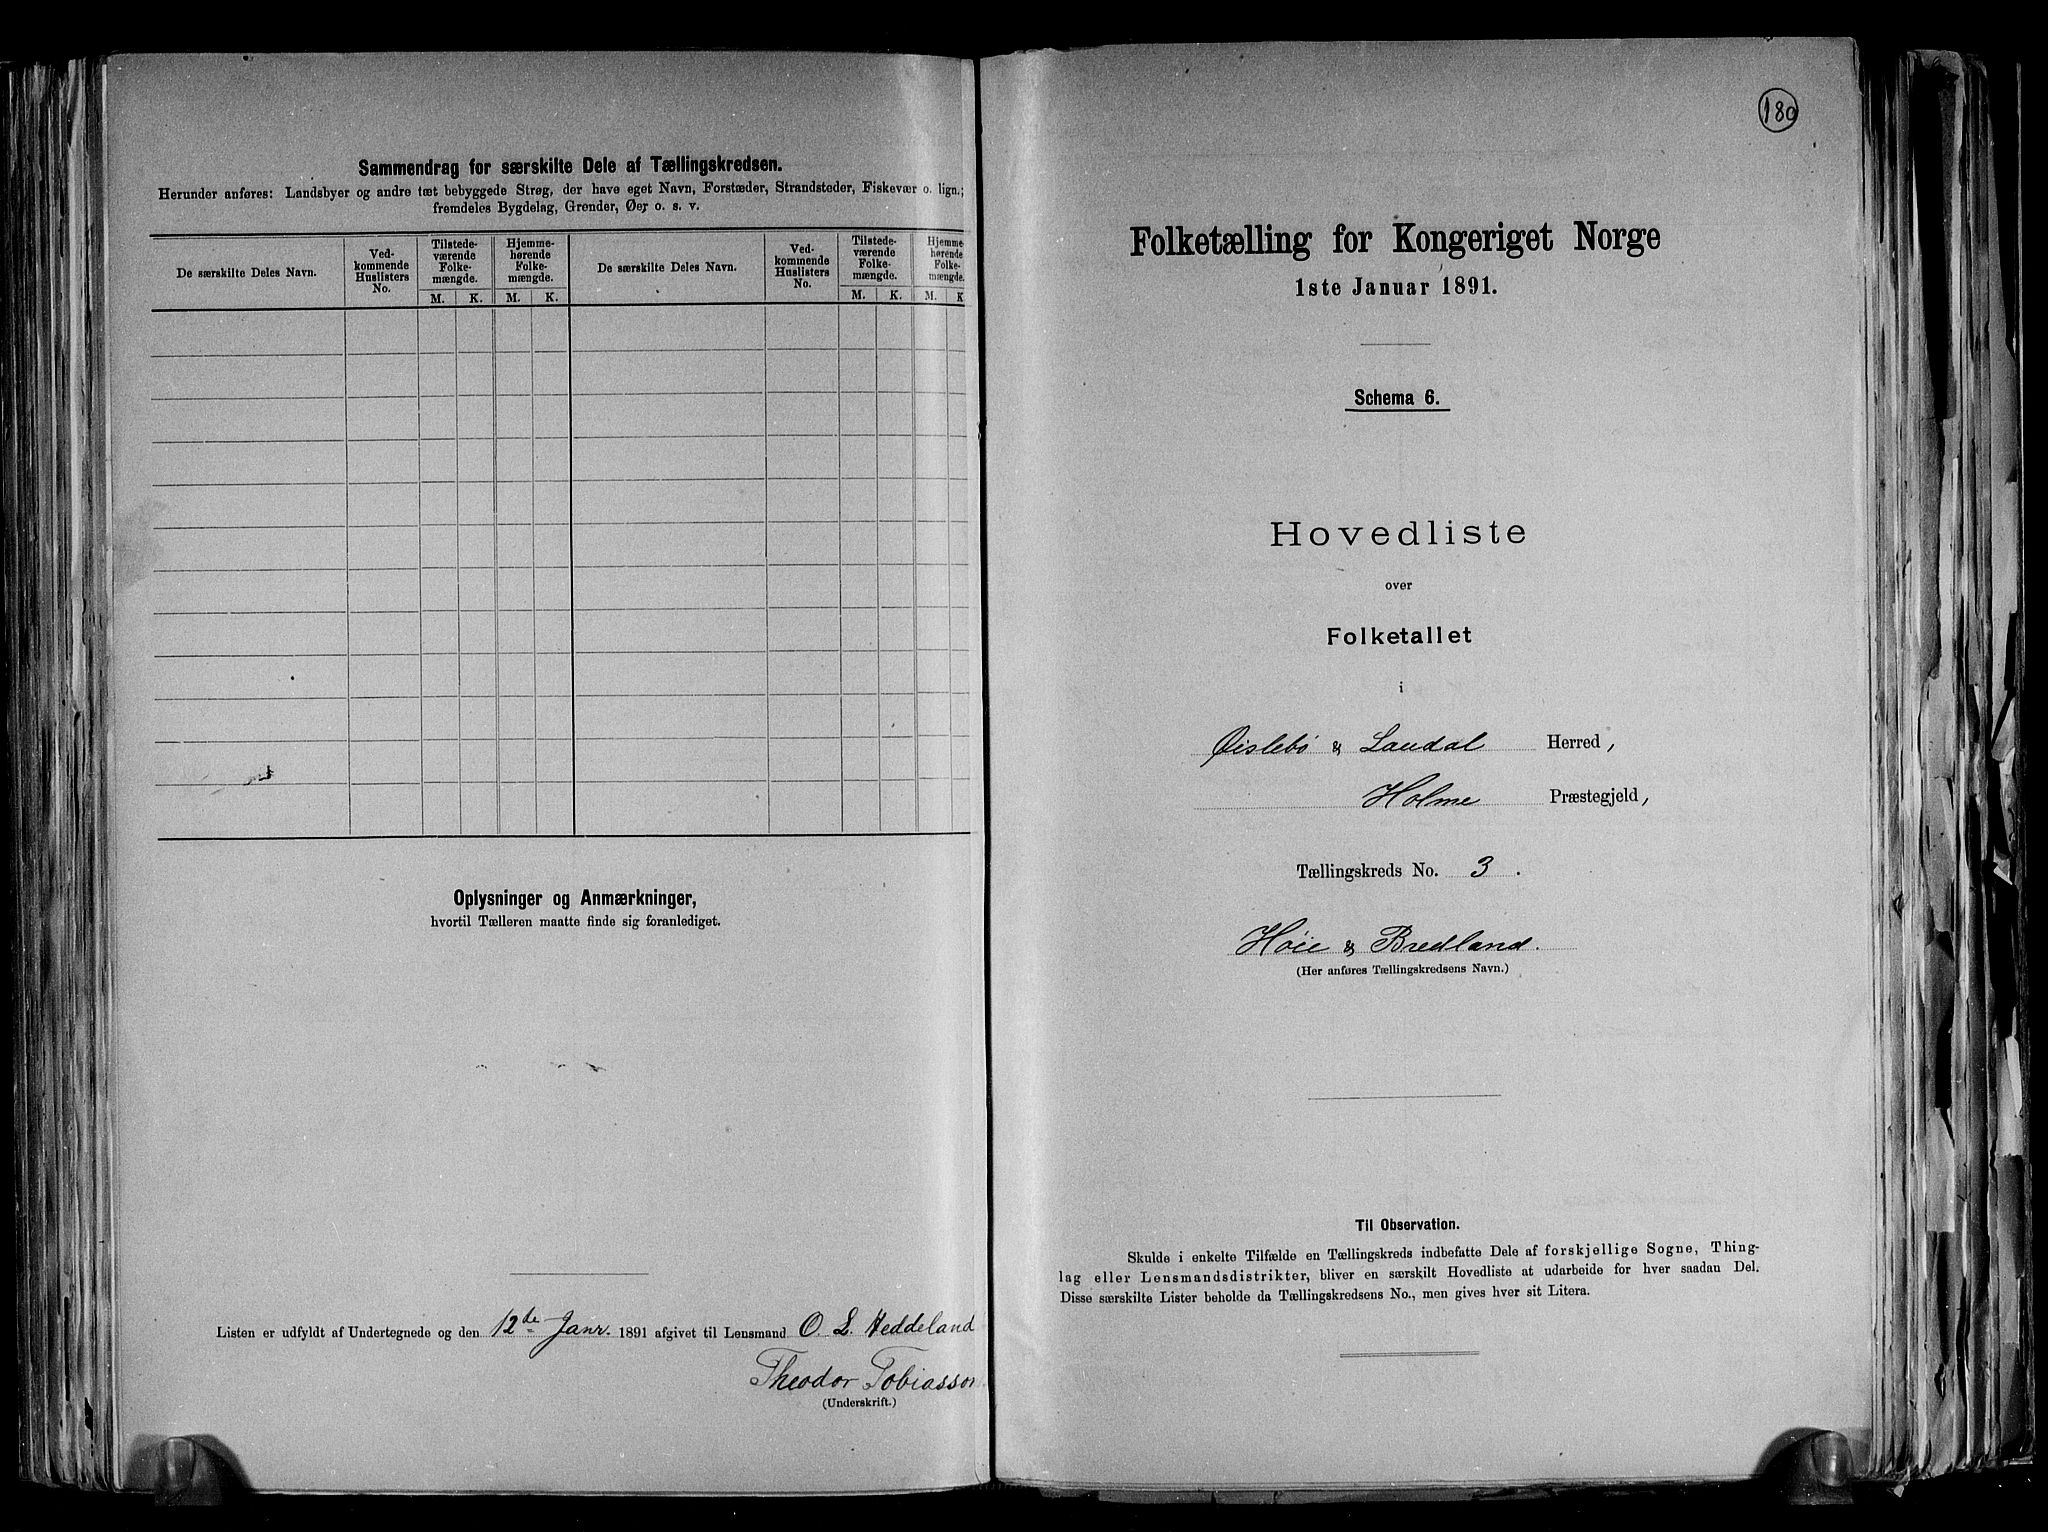 Sammendrag for særskilte Dele af Tællingskredsen.
Herunder anføres: Landsbyer og andre tæt bebyggede Strøg, der have eget Navn, Forstæder, Strandsteder, Fiskevær o. lign.;
fremdeles Bygdelag, Grender, Øer o. s. v.
De særskilte Deles Navn.
Ved-
kommende
Huslisters
No.
Tilstede-
værende
Folke-
mængde.
Hjemme-
hørende
Folke-
mængde.
M. K. M. K.
De særskilte Deles Navn.
Ved-
kommende
Huslisters
No.
Tilstede-
værende
Folke-
mængde.
Hjemme-
hørende
Folke-
mængde.
M. K. M. K
Oplysninger og Anmærkninger,
hvortil Tælleren maatte finde sig foranlediget.
Listen er udfyldt af Undertegnede og den 12de Janr. 1891 afgivet til Lensmand O. L. Heddeland
Theodor Tobiasson
(Underskrift.)
180
Folketælling for Kongeriget Norge
1ste Januar 1891.
Schema 6.
Hovedliste
over
Folketallet
i
Øislebø & Laudal Herred,
Holme Præstegjeld,
Tællingskreds No. 3.
Høie & Bredland.
(Her anføres Tællingskredsens Navn.)
Til Observation.
Skulde i enkelte Tilfælde en Tællingskreds indbefatte Dele af forskjellige Sogne, Thing-
lag eller Lensmandsdistrikter, bliver en særskilt Hovedliste at udarbeide for hver saadan Del.
Disse særskilte Lister beholde da Tællingskredsens No., men gives hver sit Litera.